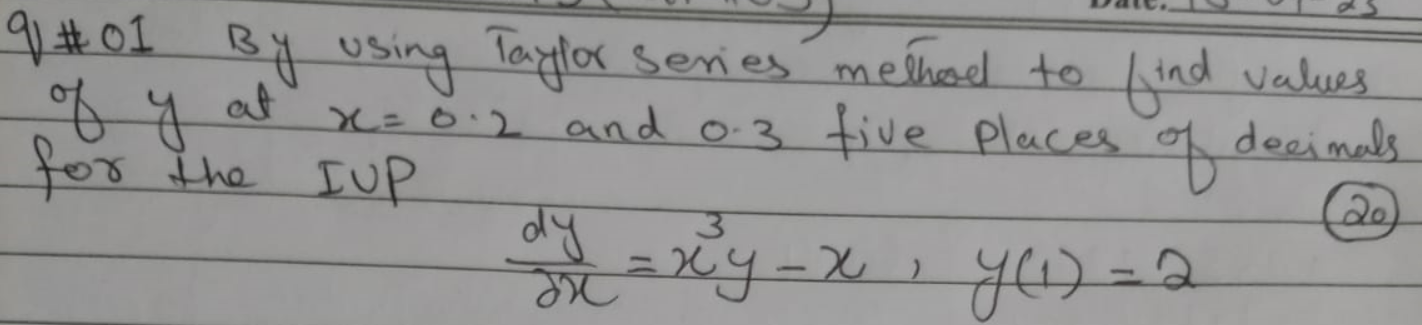 Q#01 By using Taylor series method to find values
of y at x=0.2 and 0.3 five places of decimals
for the IVP
(20)
dy/dx = x³y - x, y(1) = 2